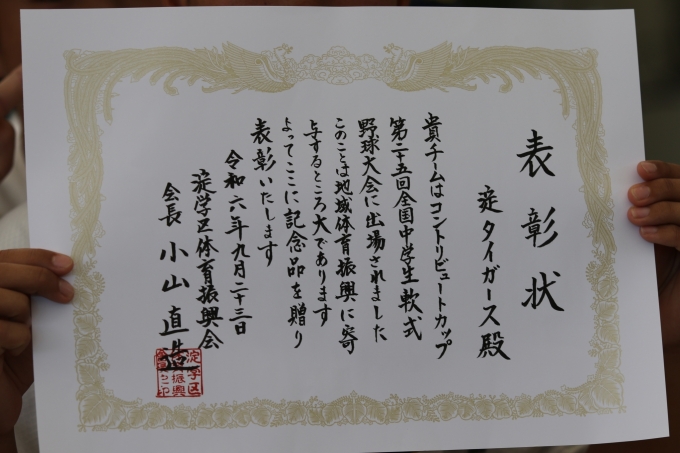 表彰状
淀タイガース殿
貴チームはコントリビュートカップ
第二十五回全国中学生軟式
野球大会に出場されました
このことは地域体育振興に寄
与するところ大であります
よってここに記念品を贈り
表彰いたします
令和六年九月二十三日
淀学区体育振興会
会長 小山直造